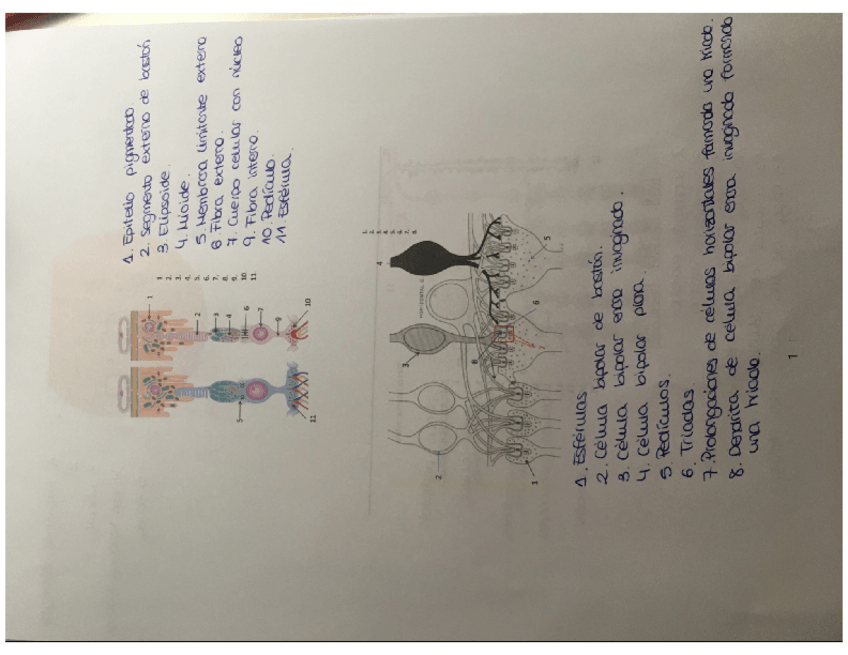 1. Epitelio pigmentado.
2. Segmento externo de bastón
3. Elipsoide.
4. Mioide.
5. Membrana limitante externa
6. Fibra externa.
7. Cuerpo celular con núcleo
9. Fibra interna.
10. Pedículo.
11. Esférula.
1.
2.
3.
4.
5.
6.
7.
8.
9.
10
11.
1
2
3
4
6
7
9
10
5
11
1.
2.
3.
4.
5.
6.
7.
8.
4
3
2
1
5
6
7
8
1. Esférulas
2. Célula bipolar de bastón.
3. Célula bipolar enana invaginada.
4. Célula bipolar plana.
5. Pedículos.
6. Triadas.
7. Prolongaciones de células horizontales formando una triada.
8. Dendrita de célula bipolar enana invaginada formando
una triada.
1